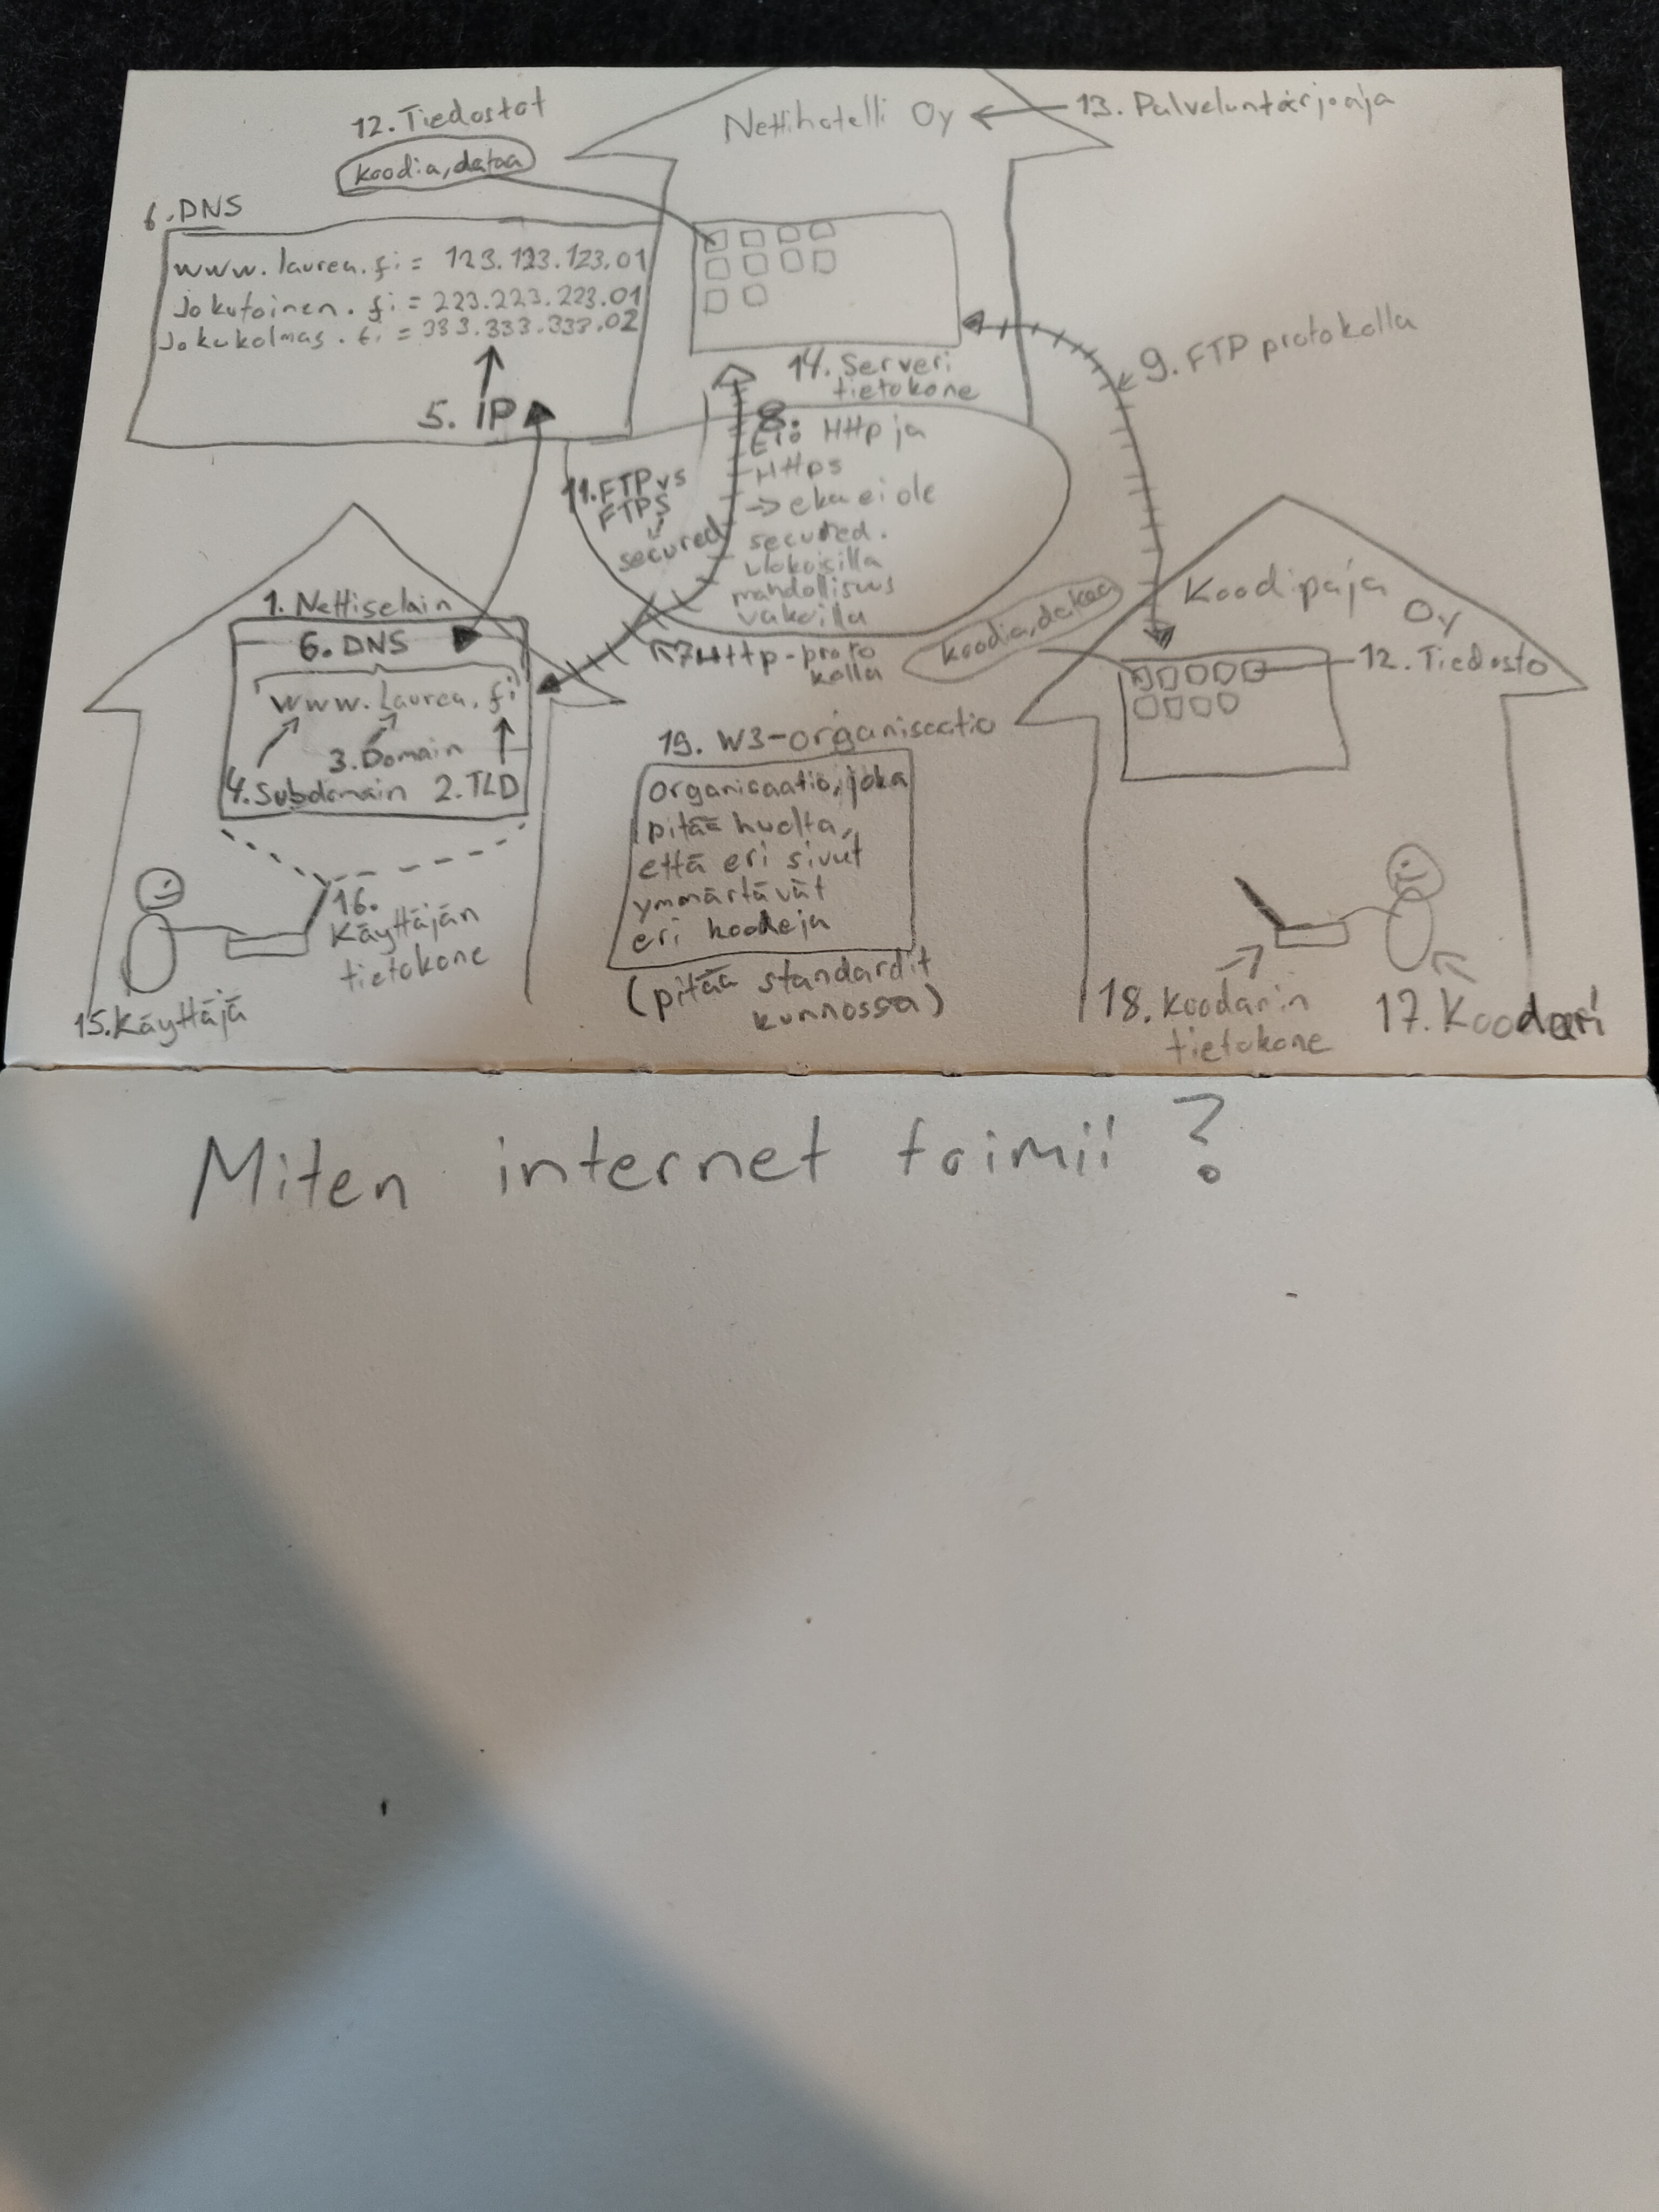 12. Tiedostot
koodia, dataa
Nettihotelli Oy
13. Palveluntarjoaja
6. DNS
www.laurea.fi = 123.123.123.01
Jokutoinen.fi = 223.223.223.01
Jokukolmas.fi = 333.333.333.02
5. IP
14. Serveri
tietokone
9. FTP protokolla
8.
Ero Http ja
Https
-> eka ei ole
secured.
ulokoisilla
mahdollisuus
vakoilla
11. FTP vs
FTPS
secured
7. Http-proto
kolla
1. Nettiselain
6. DNS
www.laurea.fi
3. Domain
4. Subdomain 2. TLD
16.
Käyttäjän
tietokone
15. Käyttäjä
19. W3-organisaatio
organisaatio, joka
pitää huolta,
että eri sivut
ymmärtävät
eri koodeja
(pitää standardit
kunnossa)
Koodipaja
Oy
koodia, dataa
12. Tiedosto
18. Koodarin
tietokone
17. Koodari
Miten internet toimii ?